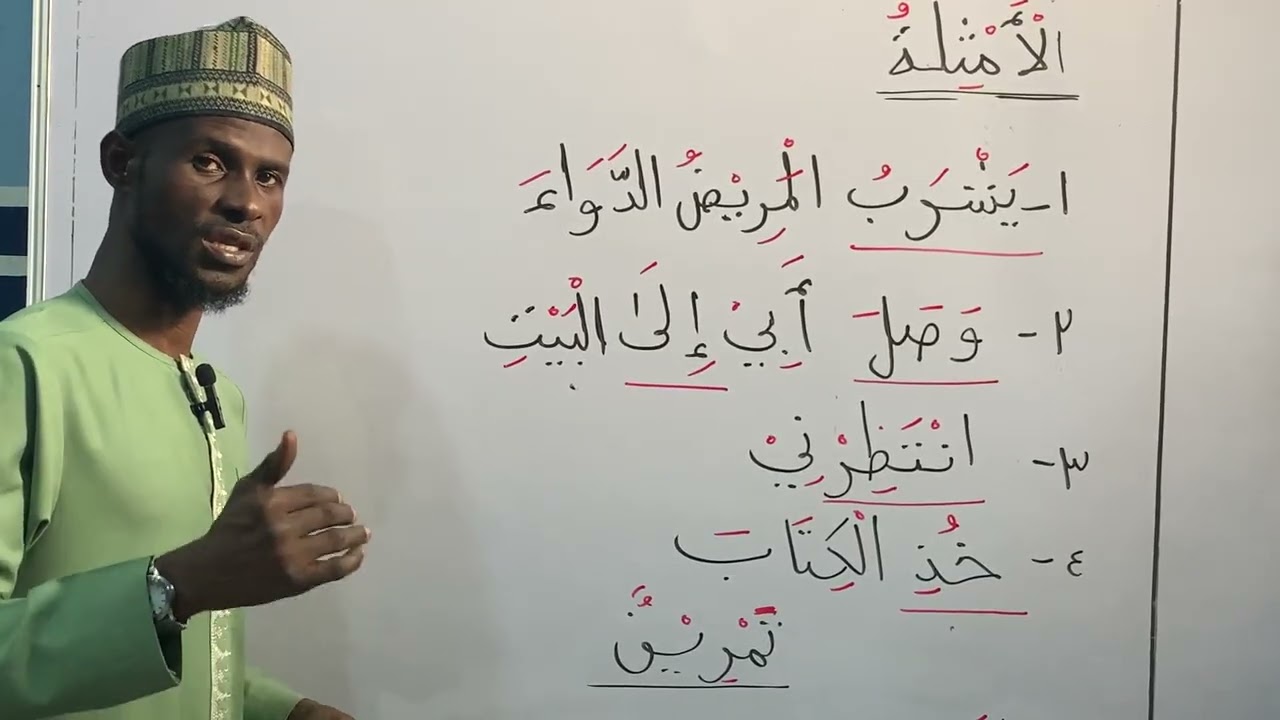 الْأَمْثِلَةُ
١- يَشْرَبُ الْمَرِيْضُ الدَّوَاءَ
٢- وَصَلَ أَبِيْ إِلَىٰ الْبَيْتِ
٣- انْتَظِرْنِيْ
٤- خُذِ الْكِتَابَ
تَمْرِيْنٌ